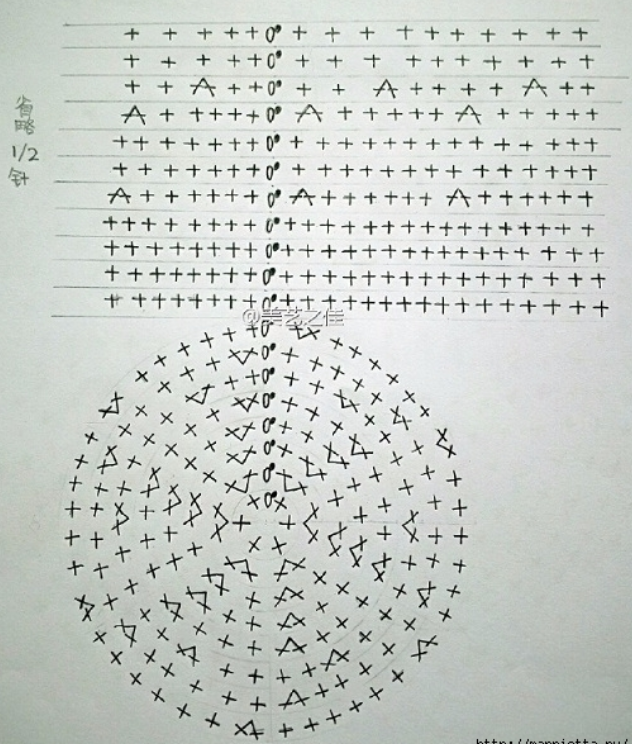 省略
1/2
针
@美艺之佳
http://marrietta.ru/